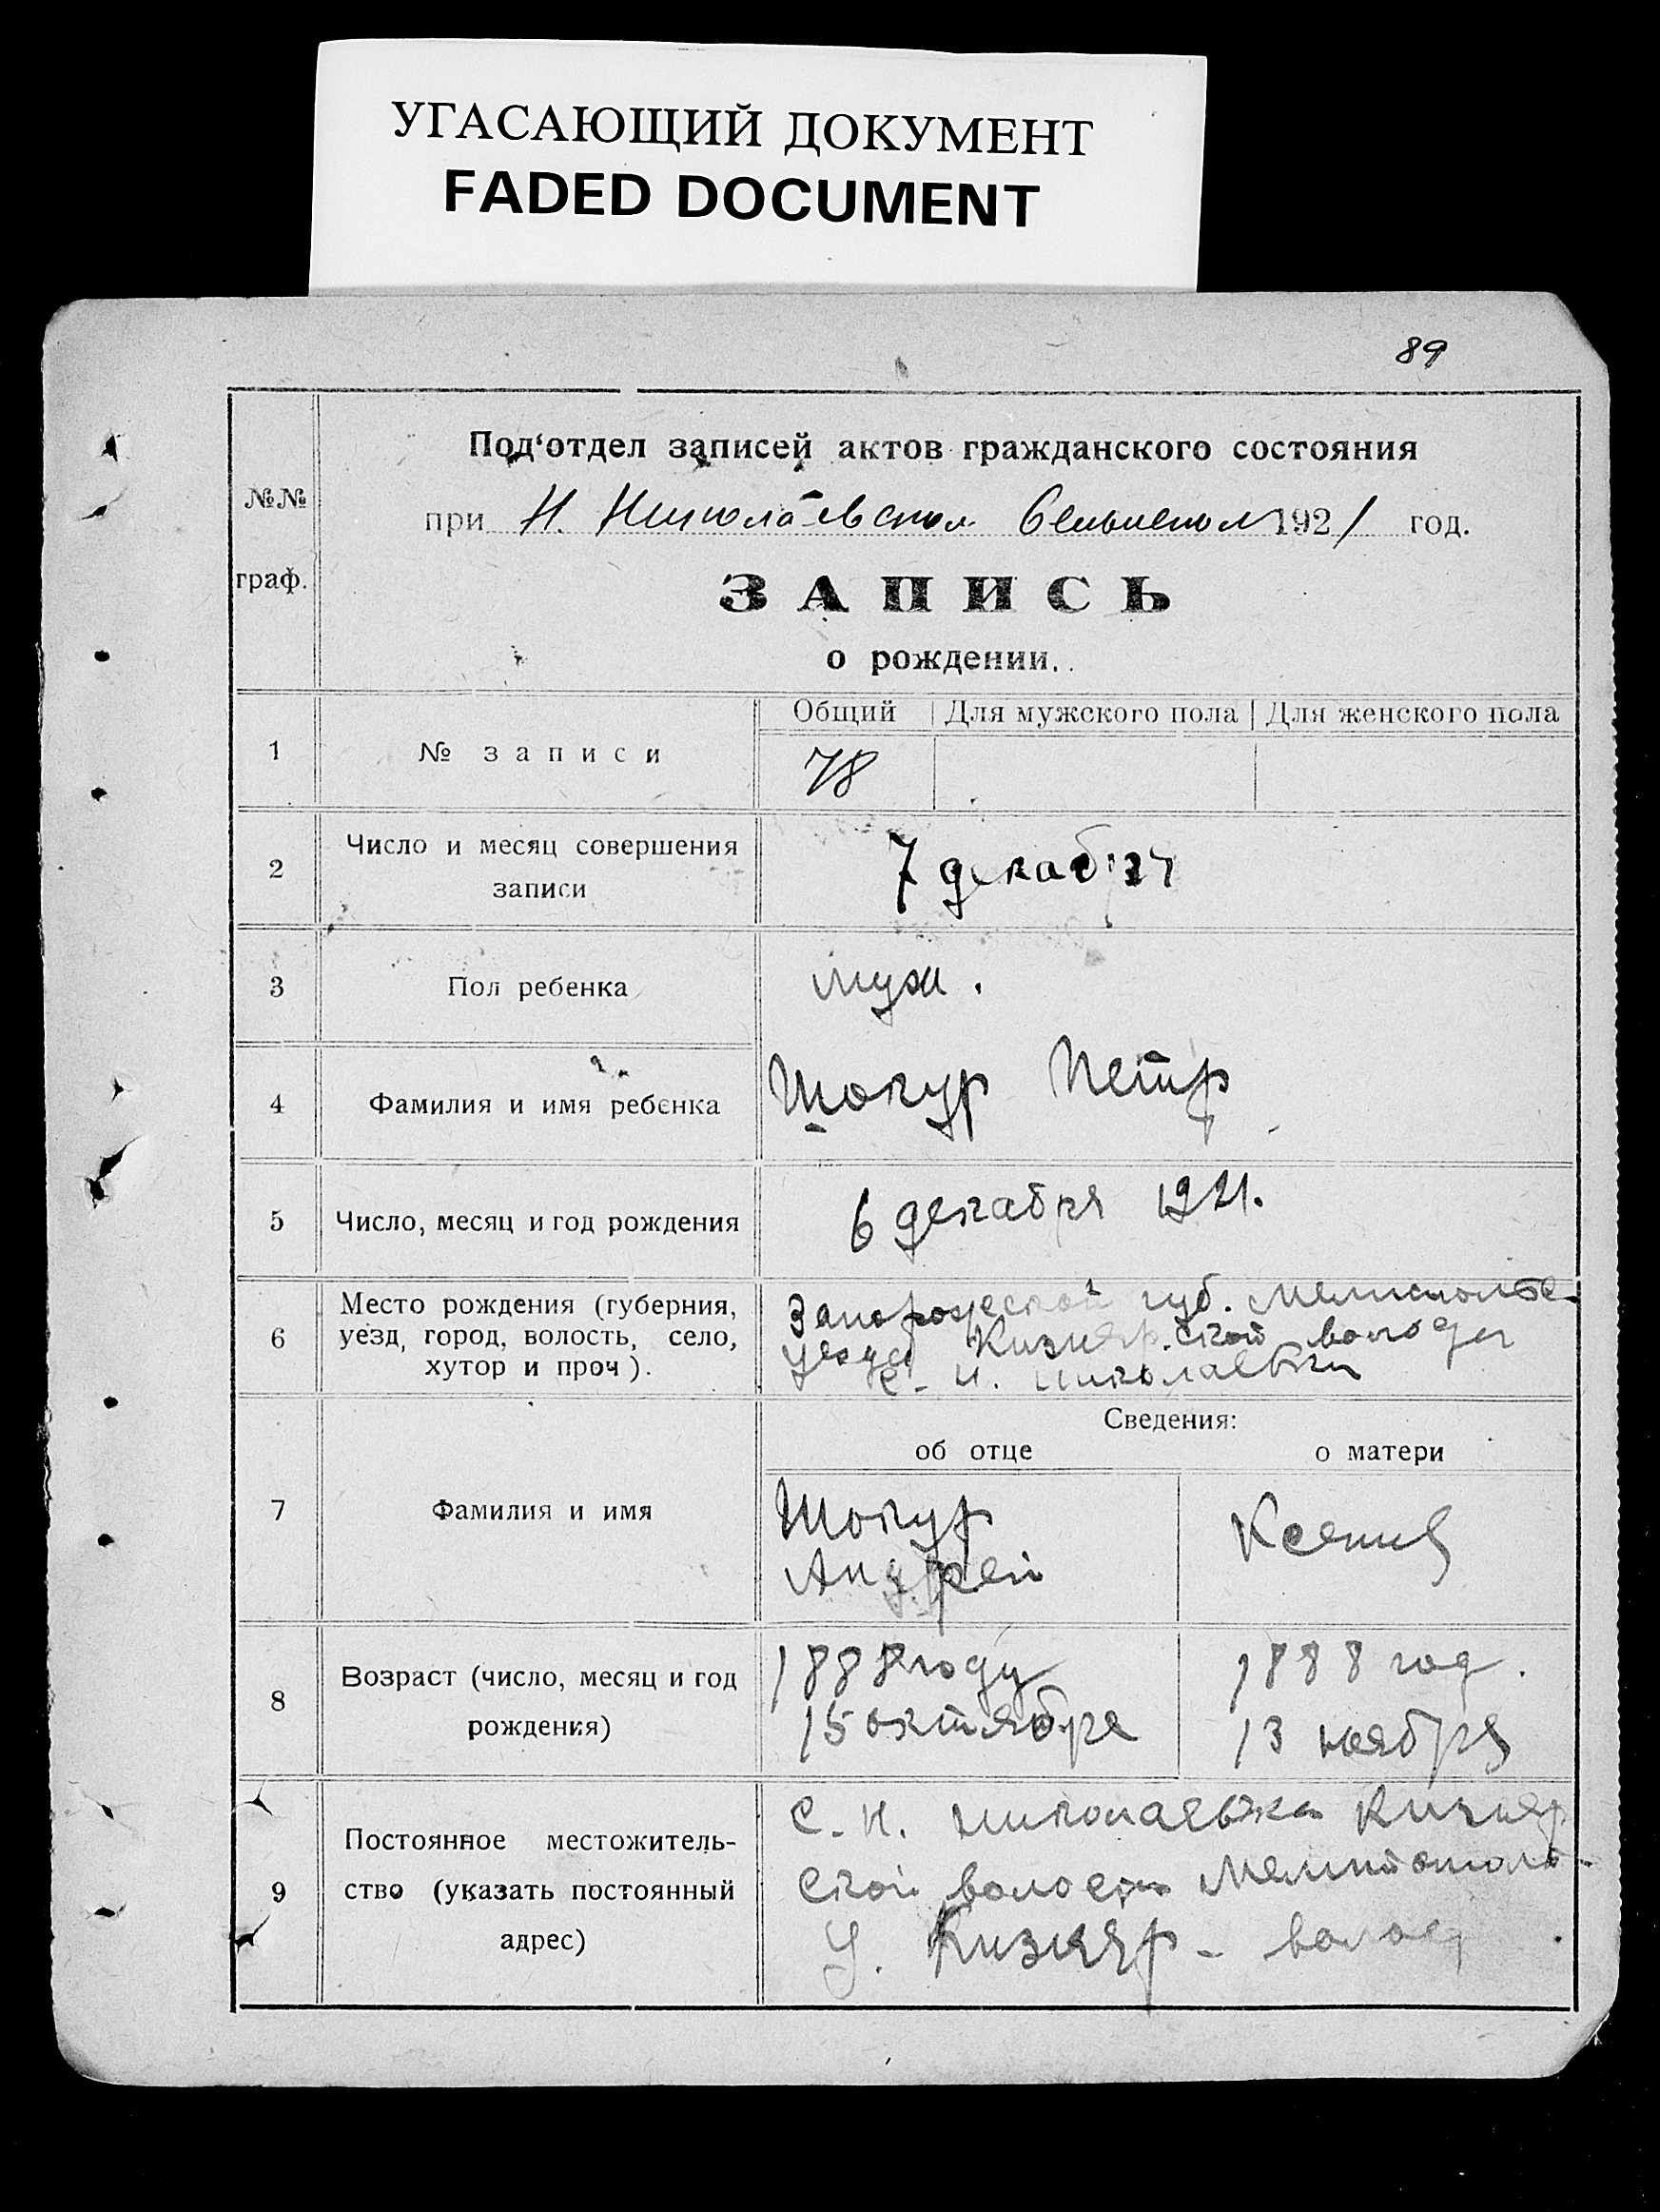 УГАСАЮЩИЙ ДОКУМЕНТ
FADED DOCUMENT
89
№№
граф.
Под‘отдел записей актов гражданского состояния
при Н. Николаевском 1921 год.
ЗАПИСЬ
о рождении.
Общий Для мужского пола Для женского пола
1 № записи 78
2 Число и месяц совершения
записи
7 декабря
3 Пол ребенка муж.
4 Фамилия и имя ребенка Шокур Петр
5 Число, месяц и год рождения 6 декабря 1921.
6 Место рождения (губерния,
уезд, город, волость, село,
хутор и проч).
Запорожской губ. Мелитополь-
уезда Кизияр.ской волости
с. Н. Николаевки
Сведения:
об отце о матери
7 Фамилия и имя
Шокур
Андрей
Ксения
8 Возраст (число, месяц и год
рождения)
1888 году
15 октября
1888 год.
13 ноября
9 Постоянное местожитель-
ство (указать постоянный
адрес)
с. Н. Николаевка Кизияр
ской волости Мелитополь-
у. Кизияр-